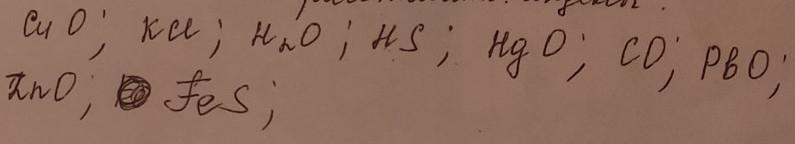 индексы.
CuO; KCl; H₂O; HS; HgO; CO; PBO;
ZnO; FeS;